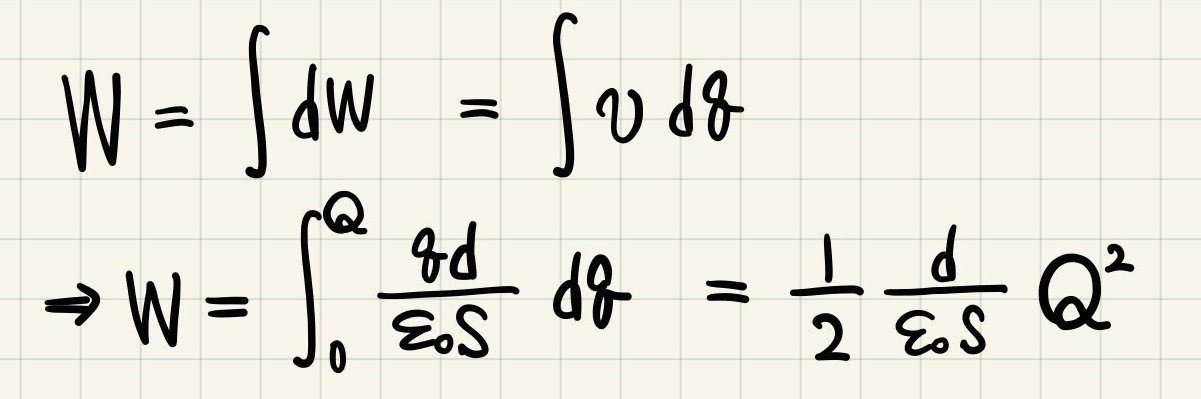 W = ∫ dW = ∫ v dq
⇒ W = ∫₀^Q qd/ε₀S dq = 1/2 d/ε₀S Q²